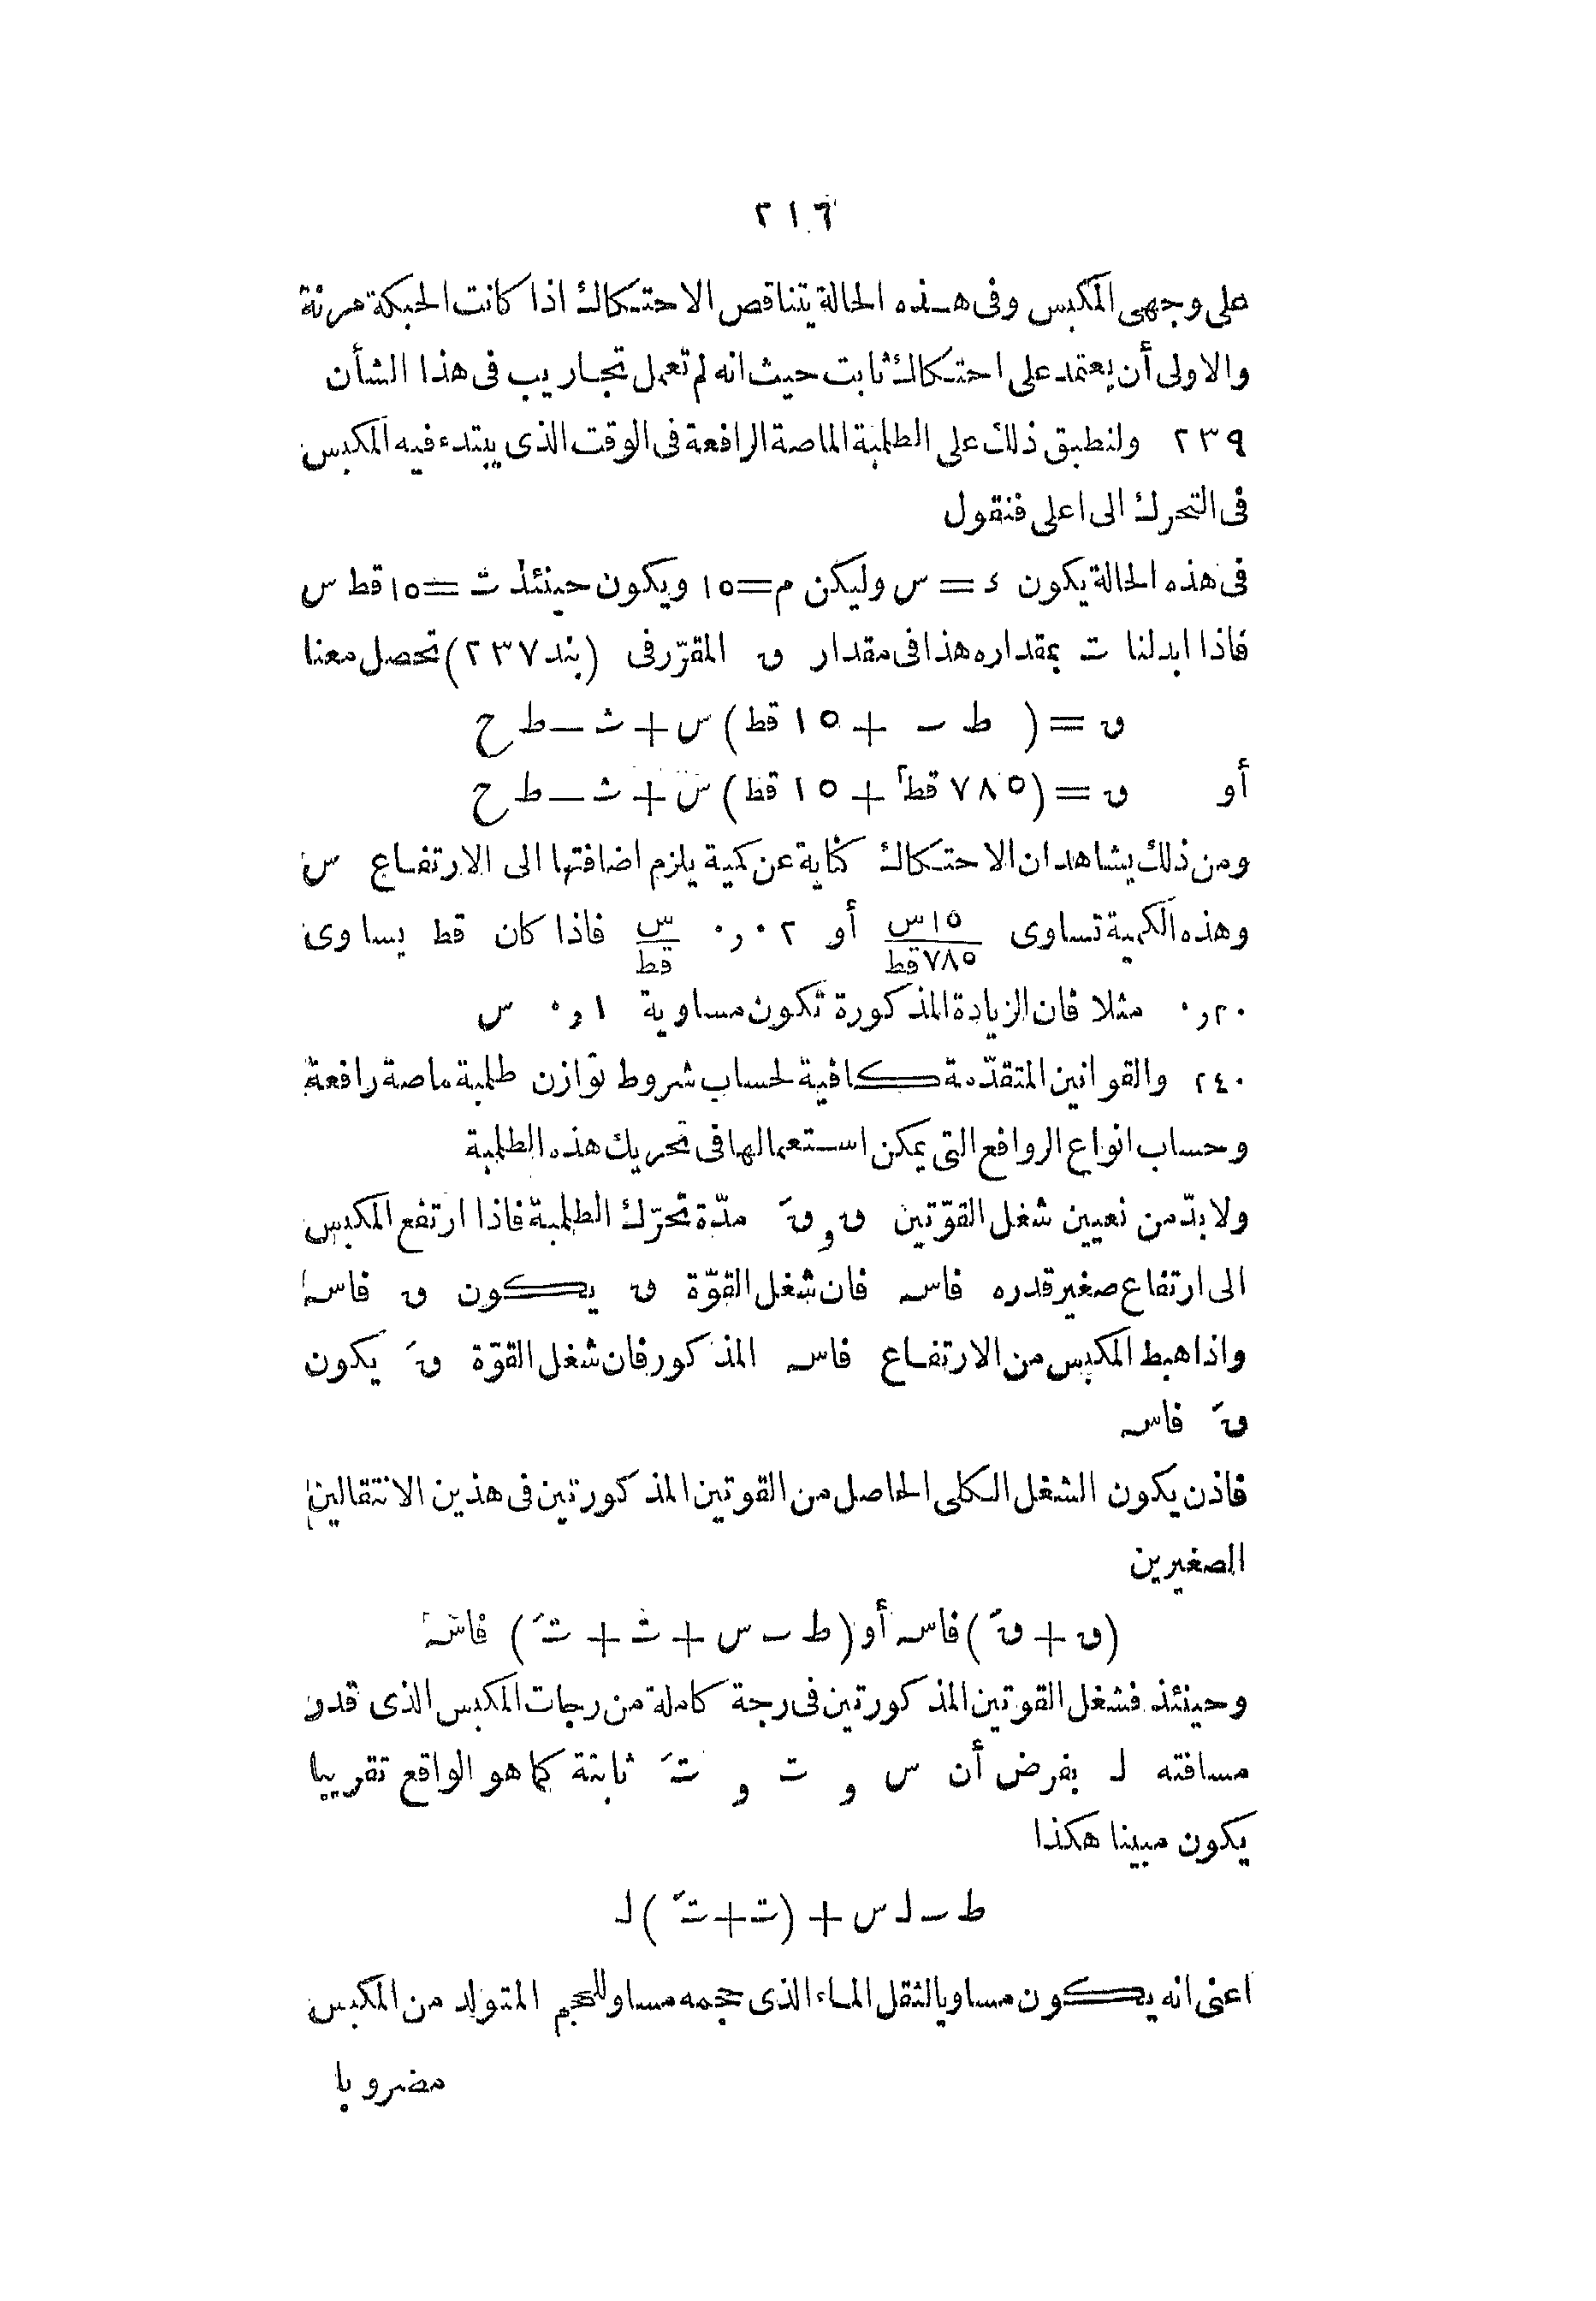 ٢١٦
على وجهى المكبس وفى هذه الحالة يتناقص الاحتكاك اذا كانت الحبكة مرنة
والاولى أن يعتمد على احتكاك ثابت حيث انه لم تعمل تجاريب فى هذا الشأن
٢٣٩ ولنطبق ذلك على الطلمبة الماصة الرافعة فى الوقت الذى يبتدء فيه المكبس
فى التحرك الى اعلى فنقول
فى هذه الحالة يكون ك = س وليكن م = ١٥ ويكون حينئذ ث = ١٥ قط س
فاذا ابدلنا ث بمقداره هذا فى مقدار ں المقرّر فى (بند ٢٣٧) تحصل معنا
ں = ( ط ـ + ١٥ قط) س + ث — ط ح
أو ں = (٧٨٥ قط٢ + ١٥ قط) س + ث — ط ح
ومن ذلك يشاهد ان الاحتكاك كناية عن كمية يلزم اضافتها الى الارتفاع س
وهذه الكمية تساوى ١٥س/٧٨٥قط أو ٠٢ر٠ س/قط فاذا كان قط يساوى
٢٠ر٠ مثلا فان الزيادة المذكورة تكون مساوية ١ر٠ س
٢٤٠ والقوانين المتقدّمة كافية لحساب شروط توازن طلمبة ماصة رافعة
وحساب انواع الروافع التى يمكن استعمالها فى تحريك هذه الطلمبة
ولا بدّ من تعيين شغل القوّتين ں و ںَ مدّة تحرّك الطلمبة فاذا ارتفع المكبس
الى ارتفاع صغير قدره فاسه فان شغل القوّة ں يكون ں فاسه
واذا هبط المكبس من الارتفاع فاسه المذكور فان شغل القوّة ںَ يكون
ںَ فاسه
فاذن يكون الشغل الكلى الحاصل من القوتين المذكورتين فى هذين الانتقالين
الصغيرين
(ں + ںَ) فاسه أو (ط ـ س + ث + ثَ) فاسه
وحينئذ فشغل القوتين المذكورتين فى رجة كاملة من رجات المكبس الذى قدر
مسافته ل بفرض أن س و ث و ثَ ثابتة كما هو الواقع تقريبا
يكون مبينا هكذا
ط ـ ل س + (ث + ثَ) ل
اعنى انه يكون مساويا لثقل الماء الذى حجمه مساو للحجم المتولد من المكبس
مضروبا